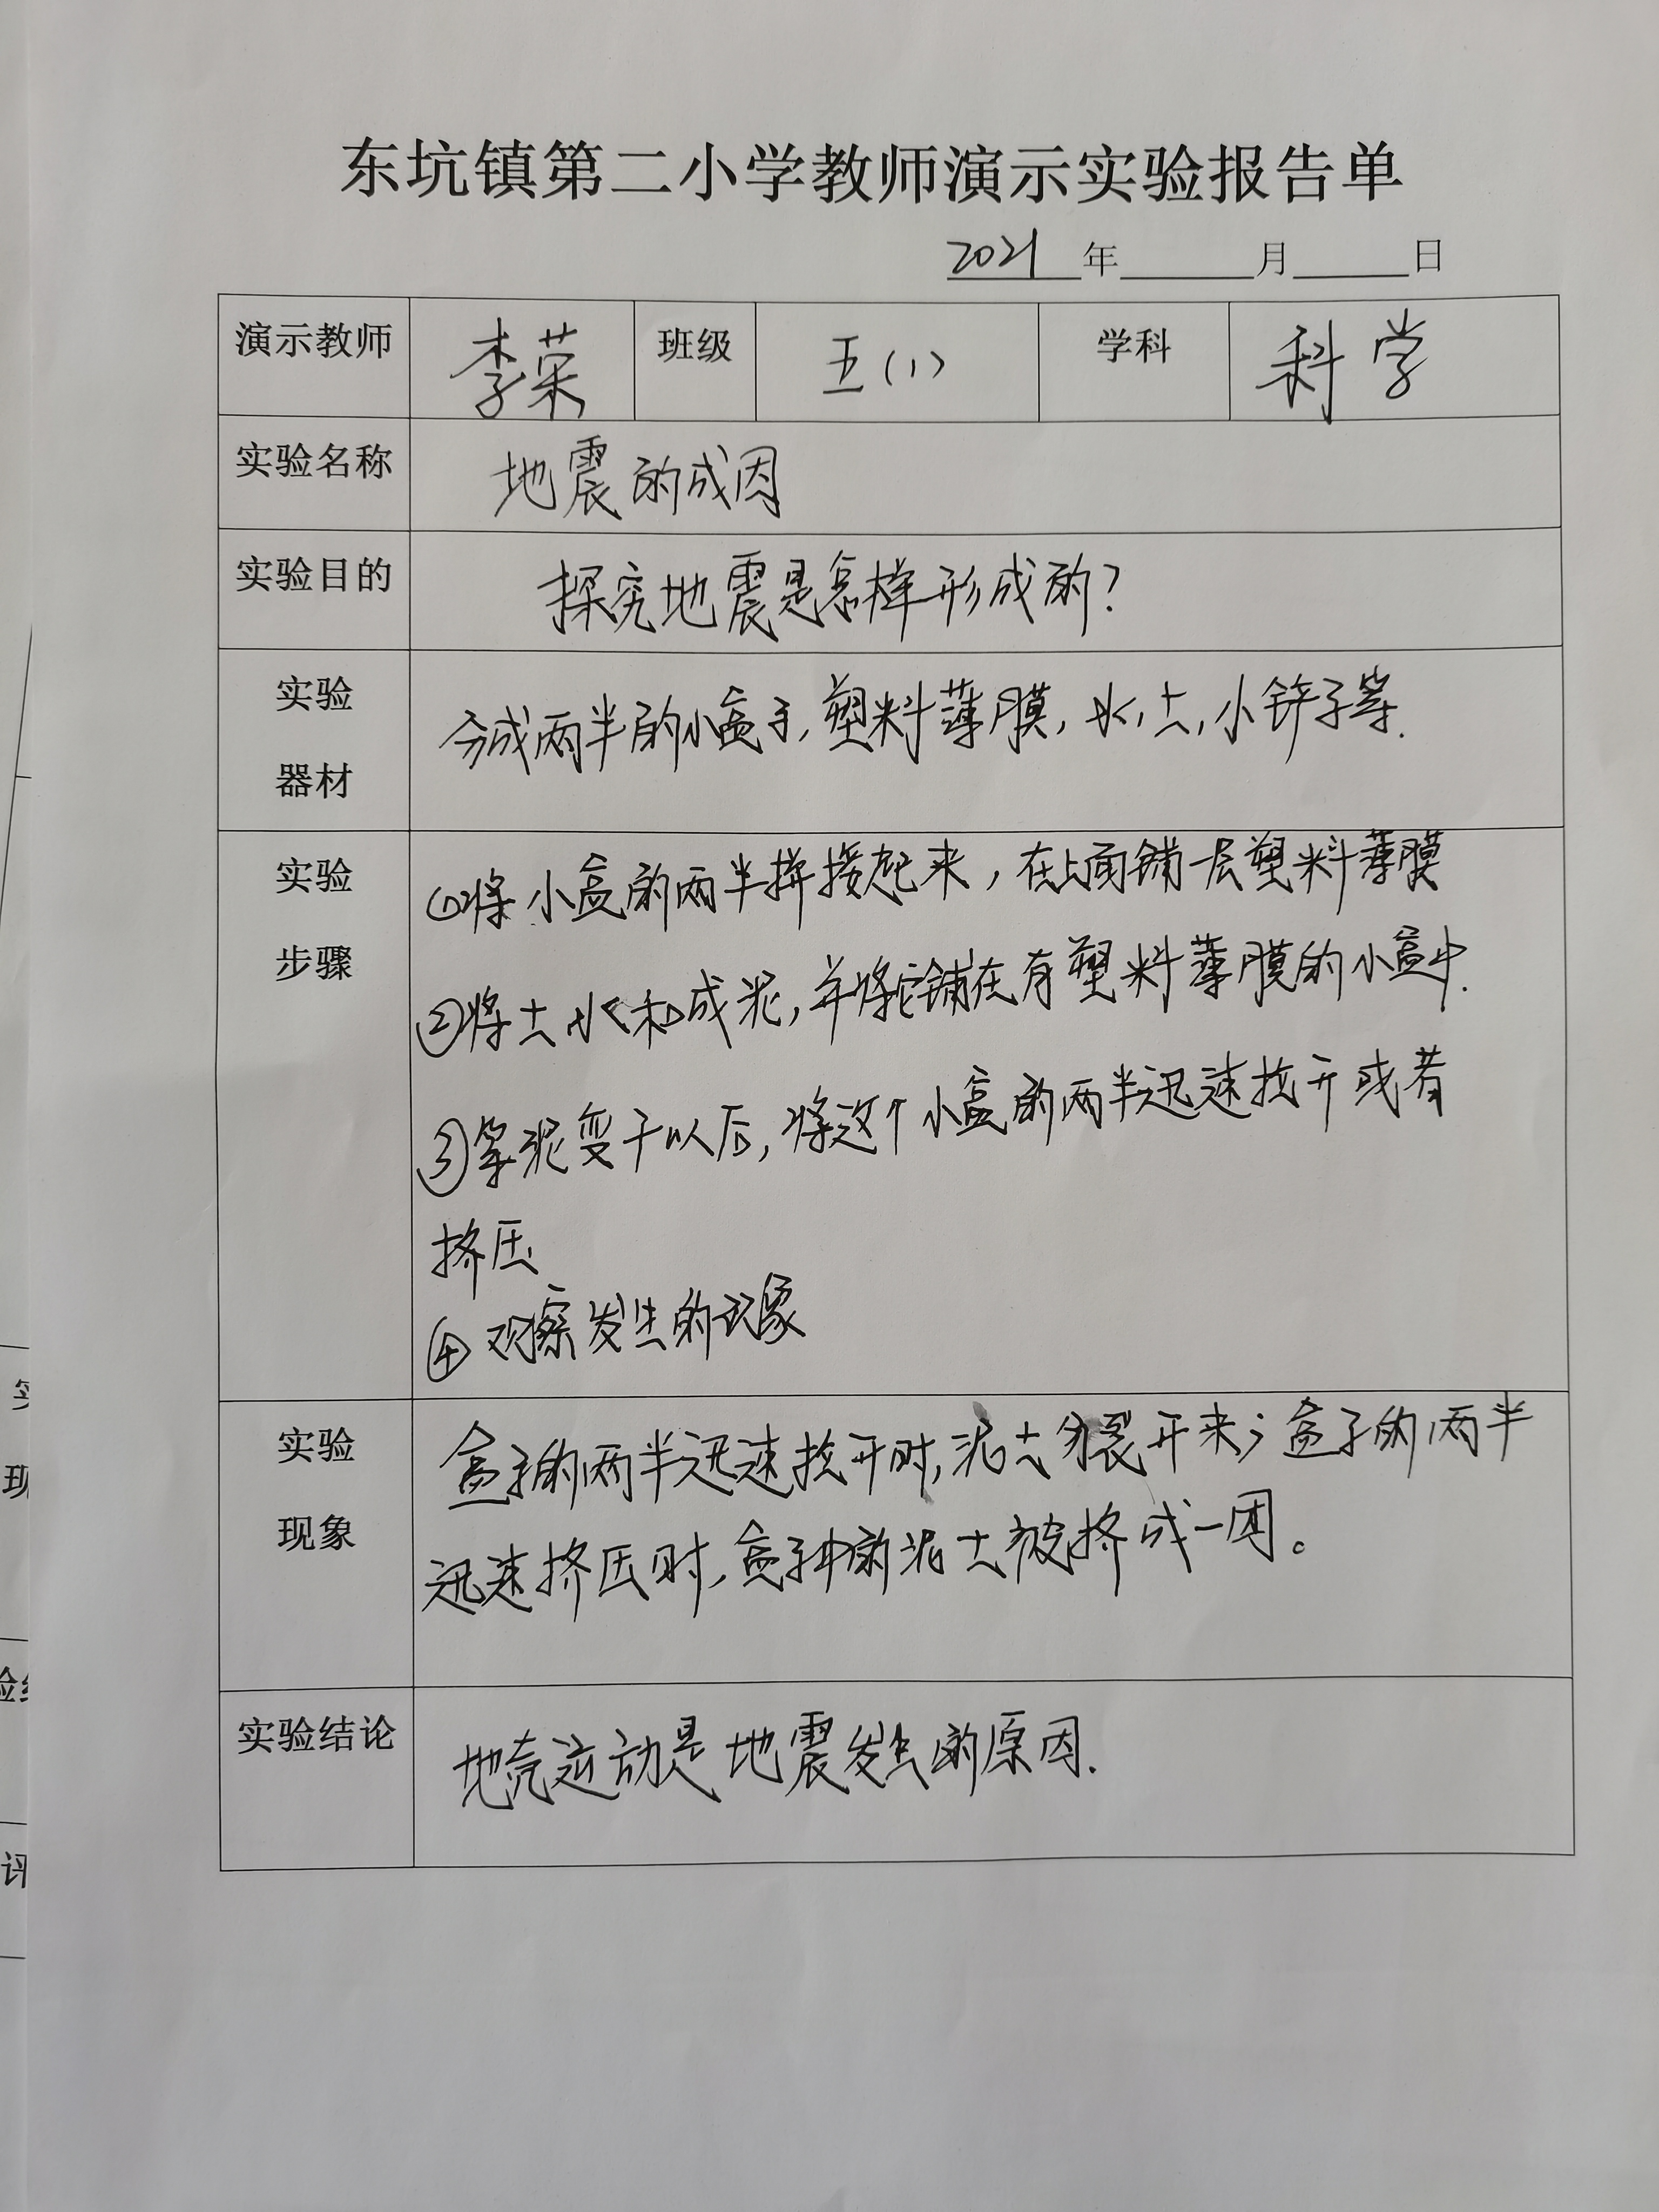 东坑镇第二小学教师演示实验报告单
2021 年 月 日
演示教师 李荣 班级 五(1) 学科 科学
实验名称 地震的成因
实验目的 探究地震是怎样形成的?
实验器材 分成两半的小盒子,塑料薄膜,水,土,小铲子等.
实验步骤 ①将小盒的两半拼接起来,在上面铺一层塑料薄膜
②将土水和成泥,并将它铺在有塑料薄膜的小盒中.
③等泥变干以后,将这个小盒的两半迅速拉开或者
挤压
④观察发生的现象
实验现象 盒子的两半迅速拉开时,泥土分裂开来;盒子的两半
迅速挤压时,盒子中的泥土被挤成一团。
实验结论 地壳运动是地震发生的原因.